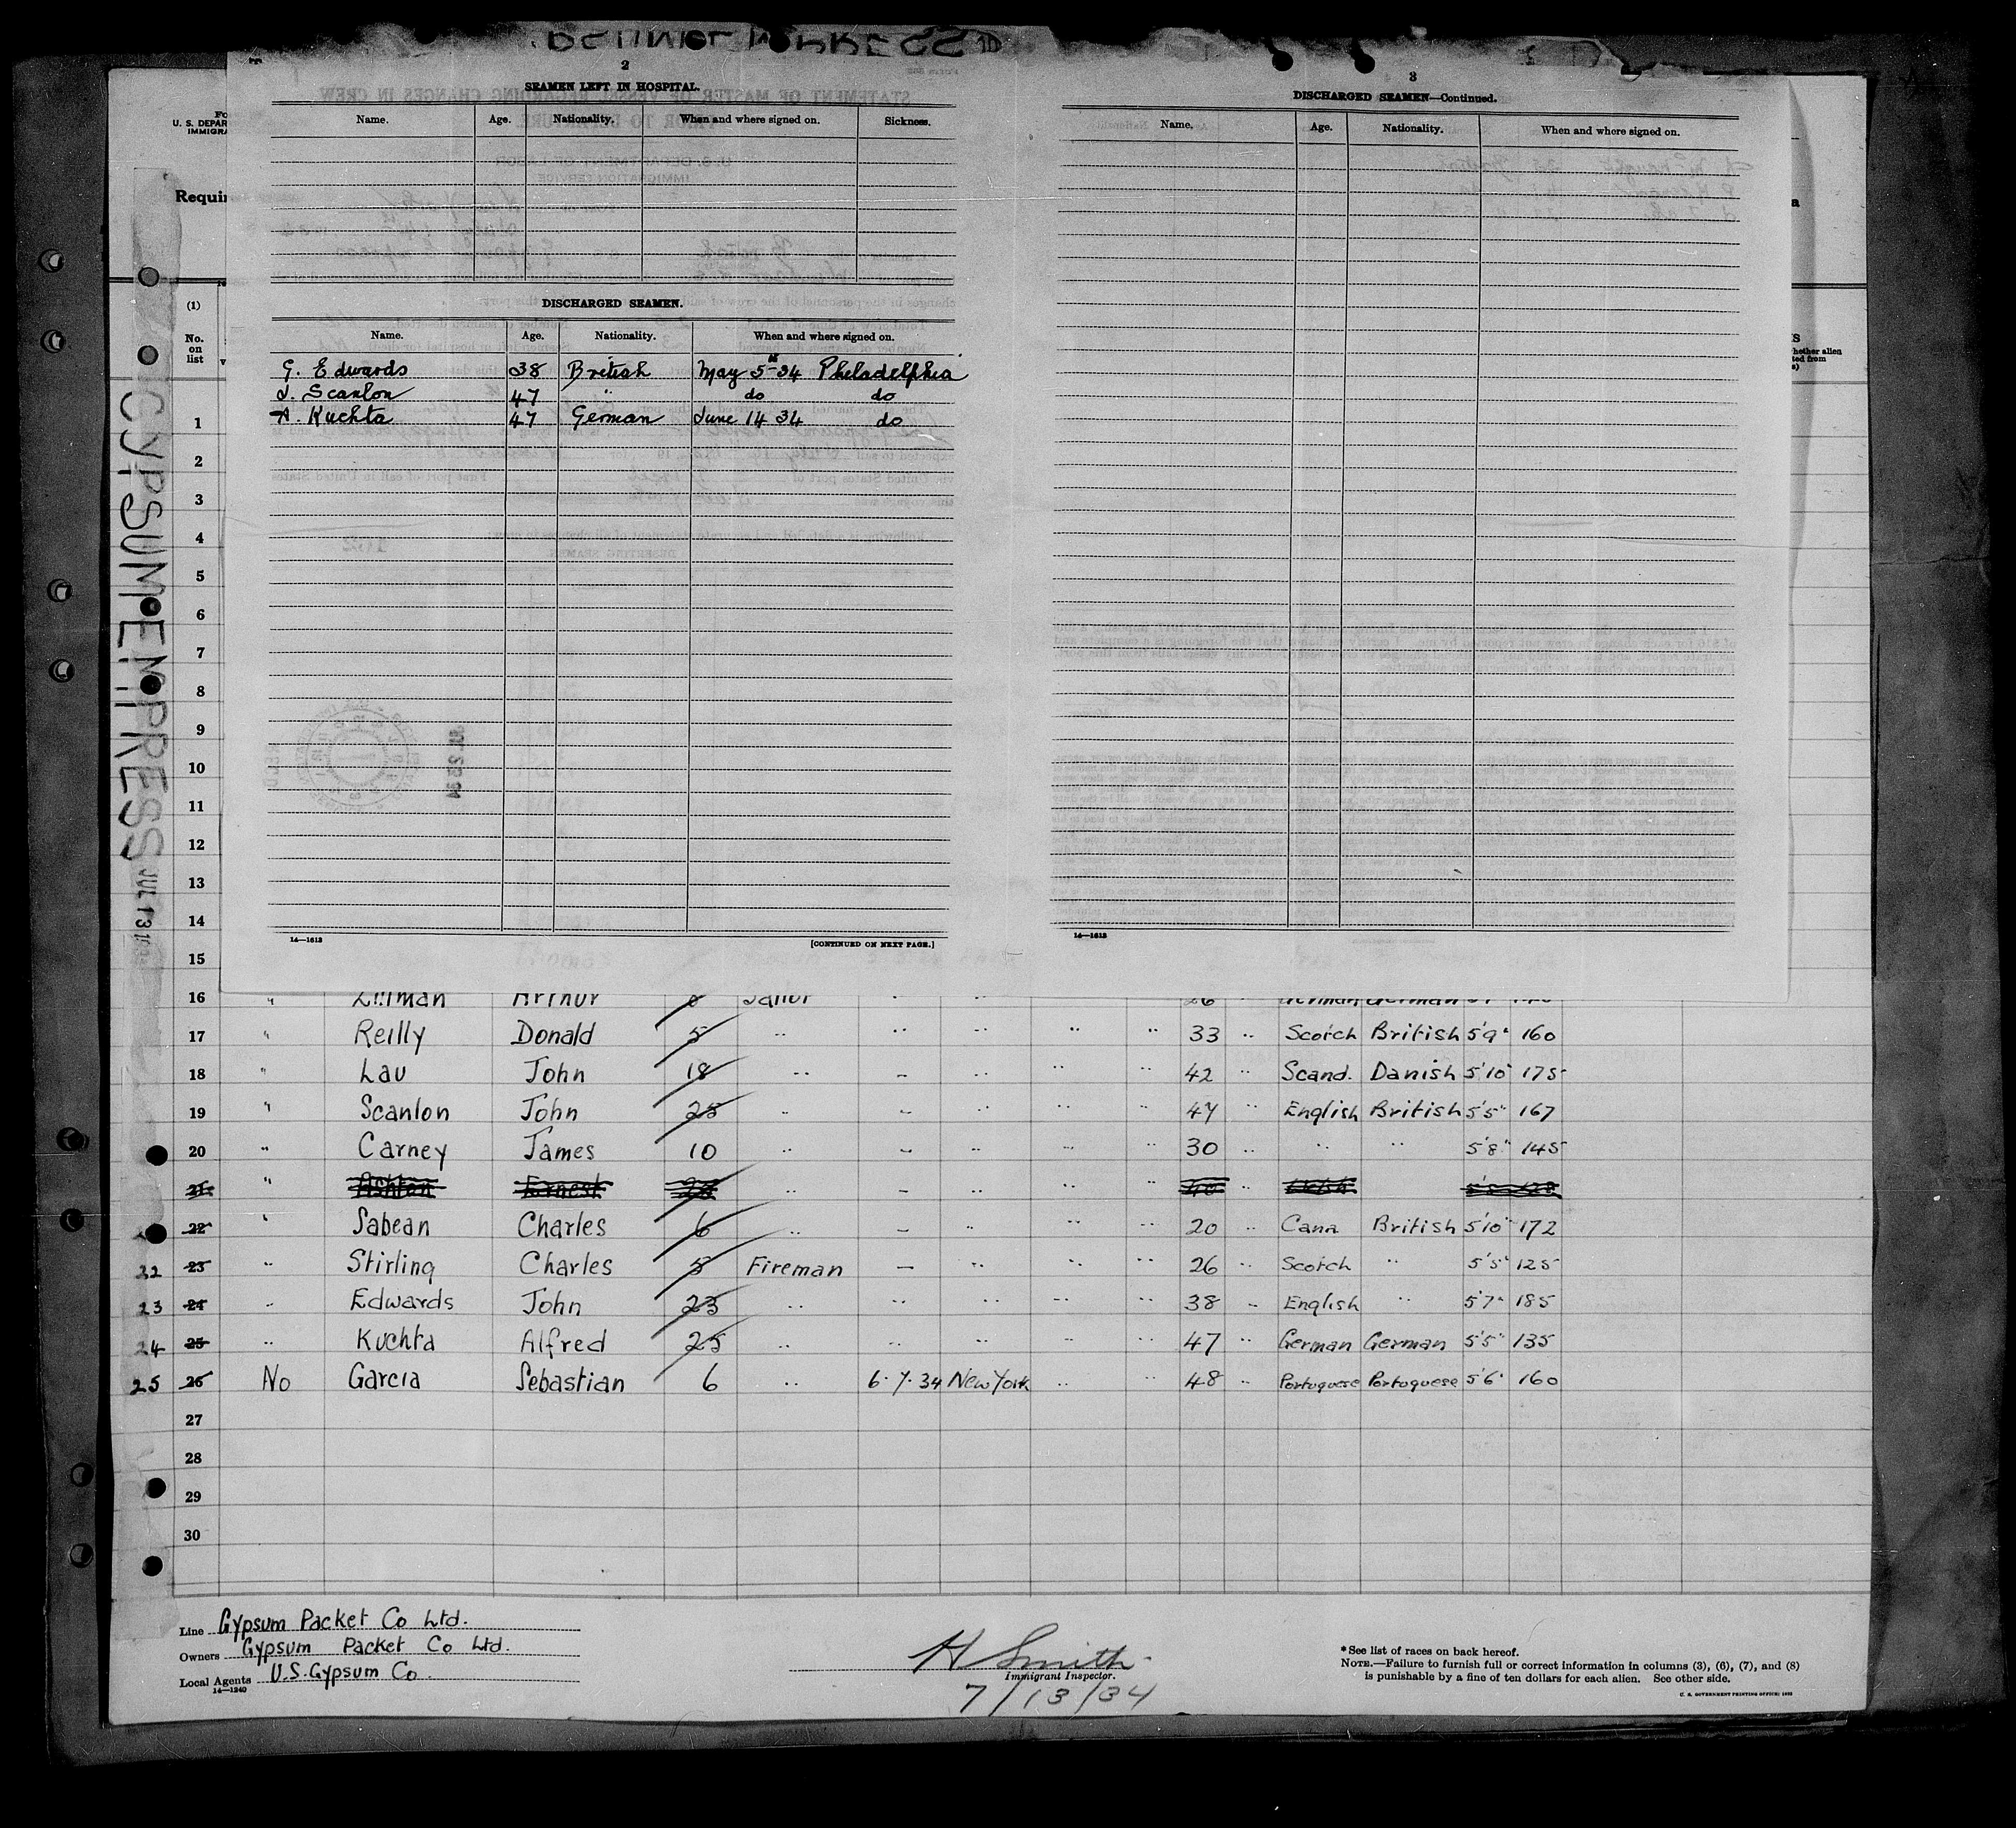 2
SEAMEN LEFT IN HOSPITAL.
Name. Age. Nationality. When and where signed on. Sickness.
DISCHARGED SEAMEN.
Name. Age. Nationality. When and where signed on.
G. Edwards 38 British May 5th 34 Philadelphia
J. Scanlon 47 " do do
A. Kuchta 47 German June 14 34 do
14—1613
[CONTINUED ON NEXT PAGE.]
3
DISCHARGED SEAMEN—Continued.
Name. Age. Nationality. When and where signed on.
14—1613
U. S. DEPAR
IMMIGRA
Requir
(1)
No. on list
GYPSUM EMPRESS
JUL 13
1
2
3
4
5
6
7
8
9
10
11
12
13
14
15
16 " Arthur Sailor 26
17 " Reilly Donald 5 " " " " " 33 " Scotch British 5'9" 160
18 " Lau John 18 " – " " " 42 " Scand. Danish 5'10" 175
19 " Scanlon John 25 " – " " " 47 " English British 5'5" 167
20 " Carney James 10 " – " " " 30 " " " 5'8" 145
21 " Ashton Ernest " – " " " 40 " Welsh
22 " Sabean Charles 6 " – " " " 20 " Cana British 5'10" 172
22 23 " Stirling Charles 5 Fireman – " " " 26 " Scotch " 5'5" 125
23 24 " Edwards John 23 " " " " " 38 " English " 5'7" 185
24 25 " Kuchta Alfred 25 " " " " " 47 " German German 5'5" 135
25 26 No Garcia Sebastian 6 " 6.7.34 New York " " 48 " Portuguese Portuguese 5'6" 160
27
28
29
30
Line Gypsum Packet Co Ltd.
Owners Gypsum Packet Co Ltd.
Local Agents U.S. Gypsum Co.
14—1240
H Smith
Immigrant Inspector.
7/13/34
*See list of races on back hereof.
NOTE.—Failure to furnish full or correct information in columns (3), (6), (7), and (8)
is punishable by a fine of ten dollars for each alien. See other side.
U. S. GOVERNMENT PRINTING OFFICE: